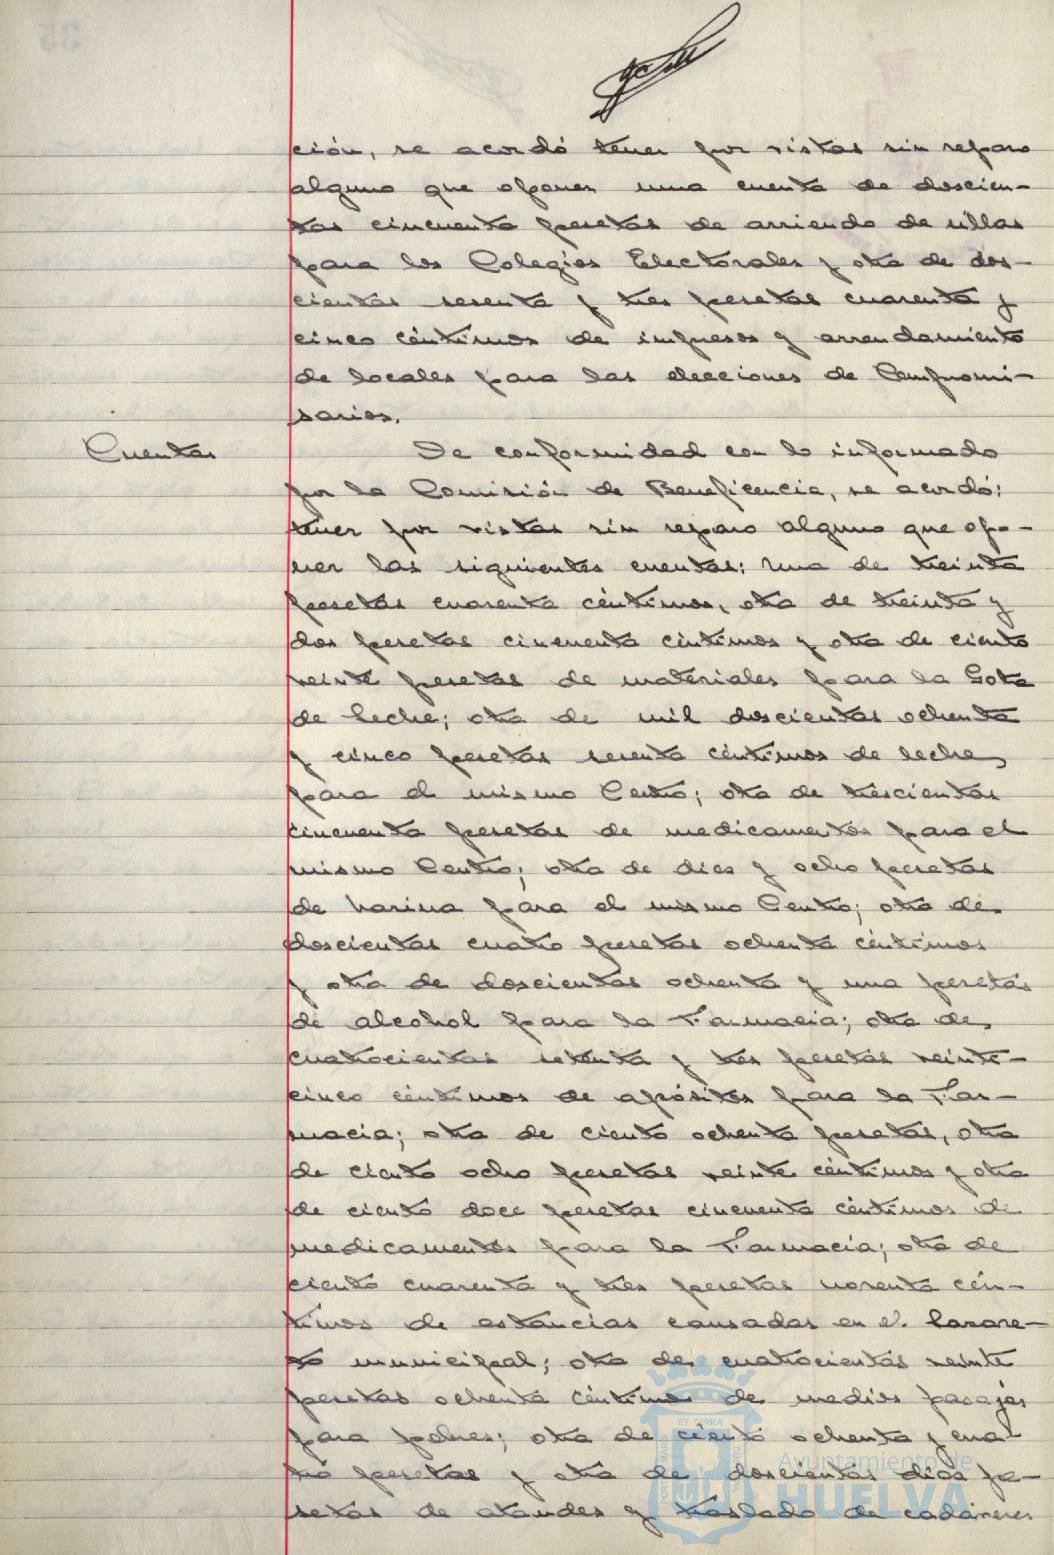 ción, se acordó tener por vistas sin reparo
alguno que oponer una cuenta de doscien-
tas cincuenta pesetas de arriendo de sillas
para los Colegios Electorales y otra de dos-
cientas sesenta y tres pesetas cuarenta y
cinco céntimos de impresos y arrendamiento
de locales para las elecciones de Compromi-
sarios.
Cuentas
De conformidad con lo informado
por la Comisión de Beneficencia, se acordó:
tener por vistas sin reparo alguno que opo-
ner las siguientes cuentas: una de treinta
pesetas cuarenta céntimos, otra de treinta y
dos pesetas cincuenta céntimos y otra de ciento
veinte pesetas de materiales para la Gota
de Leche; otra de mil doscientas ochenta
y cinco pesetas sesenta céntimos de leche,
para el mismo Centro; otra de trescientas
cincuenta pesetas de medicamentos para el
mismo Centro; otra de dies y ocho pesetas
de harina para el mismo Centro; otra de
doscientas cuatro pesetas ochenta céntimos
y otra de doscientas ochenta y una pesetas
de alcohol para la Farmacia; otra de
cuatrocientas setenta y tres pesetas veinte-
cinco céntimos de apósitos para la Far-
macia; otra de ciento ochenta pesetas, otra
de ciento ocho pesetas veinte céntimos y otra
de ciento doce pesetas cincuenta céntimos de
medicamentos para la Farmacia; otra de
ciento cuarenta y tres pesetas noventa cén-
timos de estancias causadas en el Lazare-
to municipal; otra de cuatrocientas veinte
pesetas ochenta céntimos de medios pasajes
para pobres; otra de ciento ochenta y cua-
tro pesetas y otra de doscientas dies pe-
setas de ataudes y traslado de cadáveres
Ayuntamiento de
HUELVA